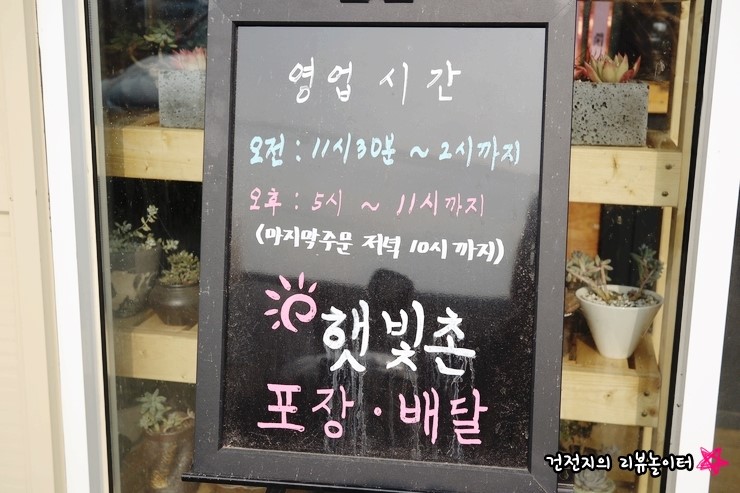 영업 시간
오전 : 11시30분 ~ 2시까지
오후 : 5시 ~ 11시까지
(마지막주문 저녁 10시까지)
햇빛촌
포장 · 배달
건전지의 리뷰놀이터